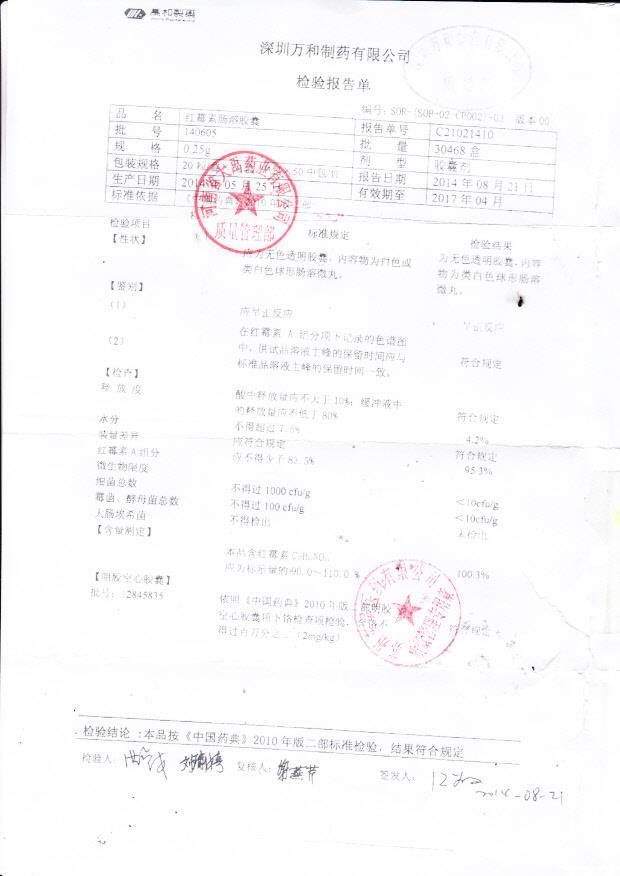 萬和製藥
深圳万和制药有限公司
检验报告单
编号：SOR-(SOP-02-CP002)-03 版本 00
品 名 红霉素肠溶胶囊 报告单号 C21021410
批 号 140605 批 量 30468 盒
规 格 0.25g 剂 型 胶囊剂
包装规格 20 报告日期 2014 年 08 月 21 日
生产日期 2014 年 05 月 25 日 有效期至 2017 年 04 月
标准依据
质量管理部
检验项目 标准规定 检验结果
【性状】 应为无色透明胶囊，内容物为白色或 为无色透明胶囊，内容
类白色球形肠溶微丸。 物为类白色球形肠溶
微丸。
【鉴别】
（1） 应呈正反应 呈正反应
在红霉素 A 组分项下记录的色谱图
（2） 中，供试品溶液主峰的保留时间应与 符合规定
标准品溶液主峰的保留时间一致。
【检查】
释 放 度 酸中释放量应不大于 10%；缓冲液中
的释放量应不低于 80% 符合规定
水分 不得超过 7.5% 4.2%
装量差异 应符合规定 符合规定
红霉素 A 组分 应不得少于 83.5% 95.3%
微生物限度
细菌总数 不得过 1000 cfu/g <10cfu/g
霉菌、酵母菌总数 不得过 100 cfu/g <10cfu/g
大肠埃希菌 不得检出 未检出
【含量测定】
本品含红霉素
应为标示量的 90.0～110.0 % 100.3%
【明胶空心胶囊】
批号：2845835 依照《中国药典》2010 年版 明胶
空心胶囊项下铬检查项检验，铬不 符合规定
得过百万分之二（2mg/kg）
检验结论：本品按《中国药典》2010 年版二部标准检验，结果符合规定
检验人： 复核人： 签发人：
2014-08-21